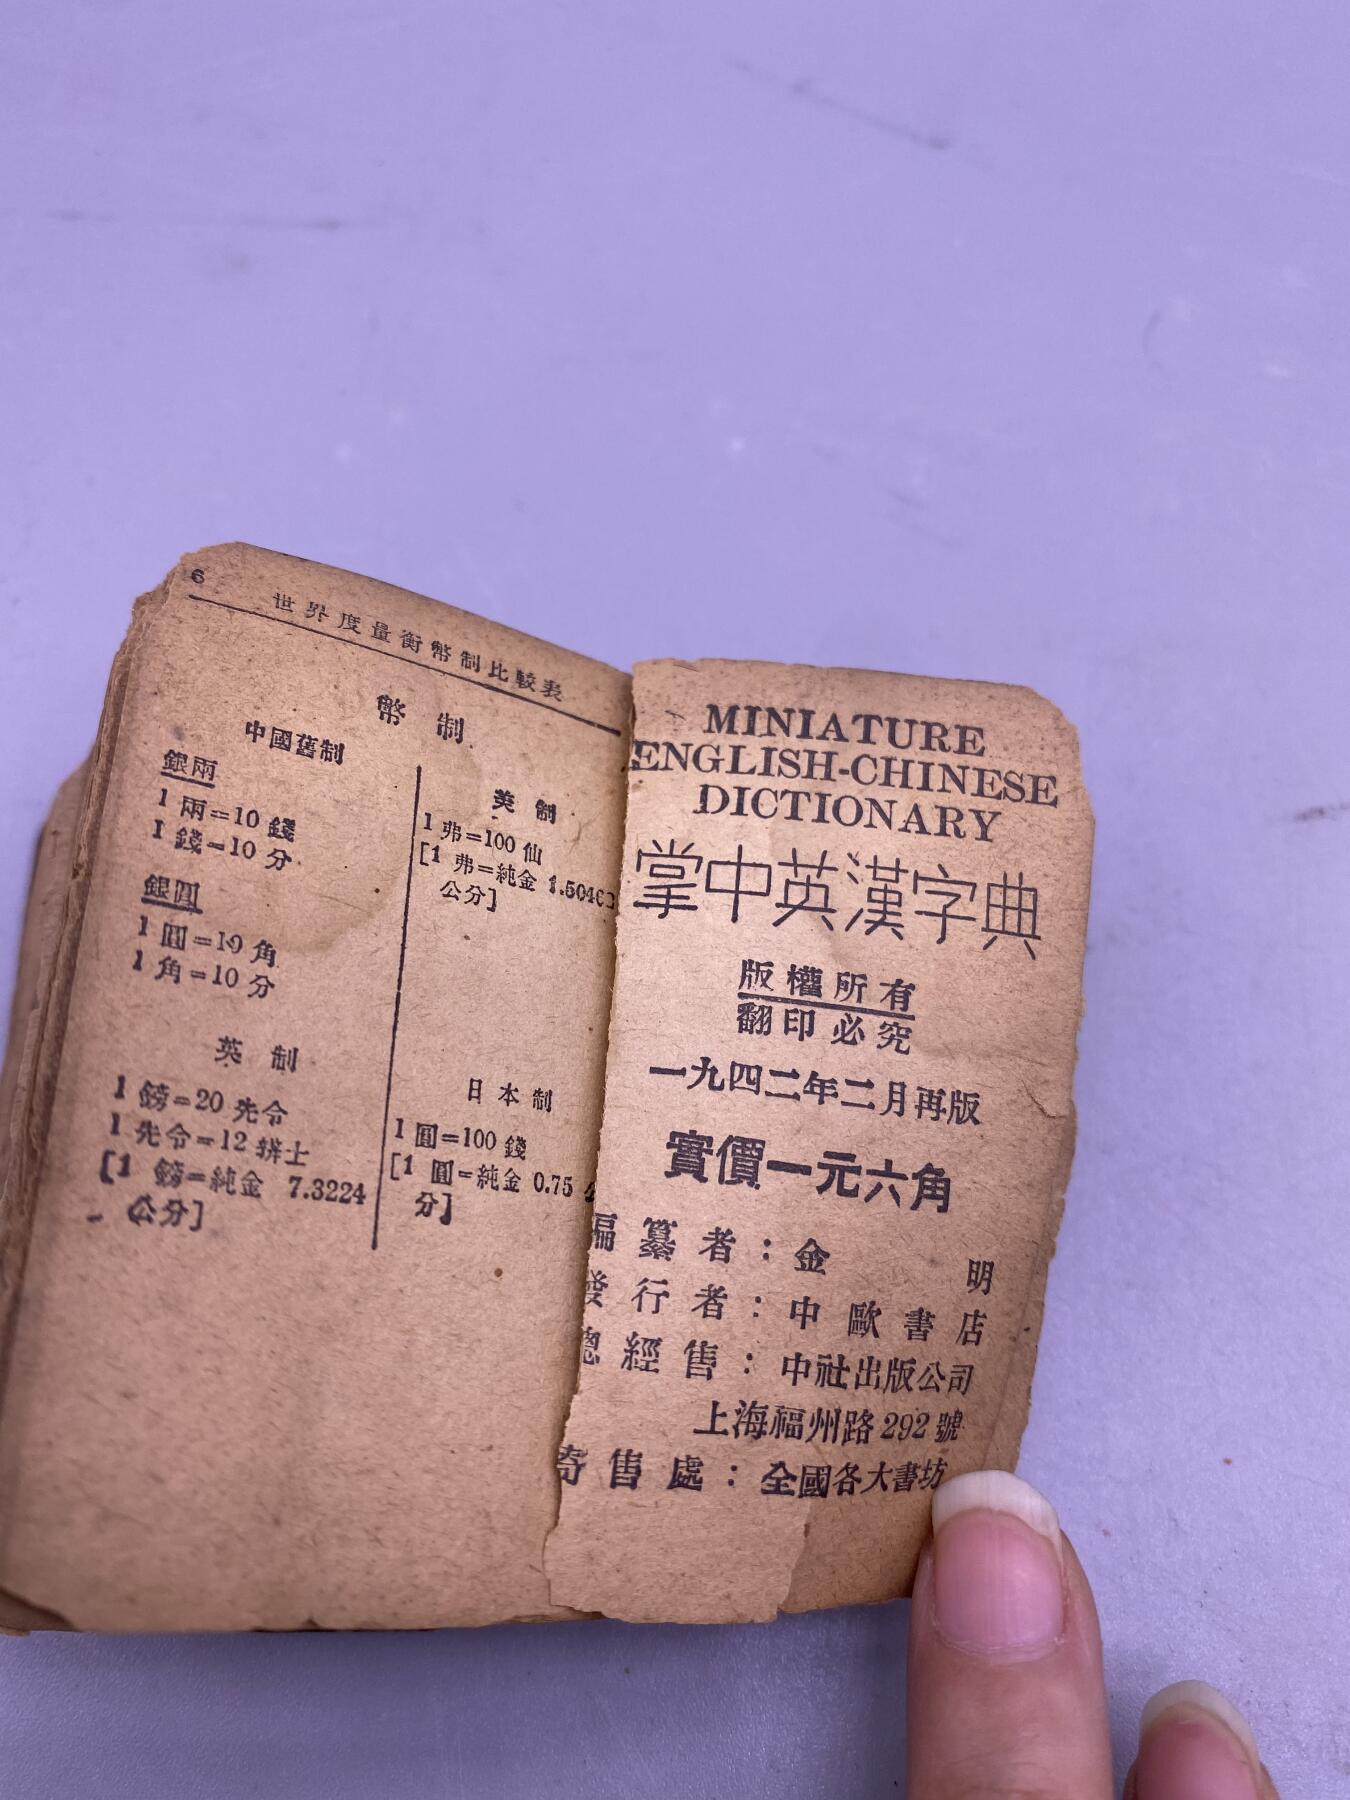 6
世界度量衡幣制比較表
幣制
中國舊制
銀兩
1 兩=10 錢
1 錢=10 分
銀圓
1 圓=10 角
1 角=10 分
英制
1 鎊=20 先令
1 先令=12 辨士
[1 鎊=純金 7.3224
公分]
美制
1 弗=100 仙
[1 弗=純金 1.5046
公分]
日本制
1 圓=100 錢
[1 圓=純金 0.75
分]
MINIATURE
ENGLISH-CHINESE
DICTIONARY
掌中英漢字典
版權所有
翻印必究
一九四二年二月再版
實價一元六角
編纂者：金明
發行者：中歐書店
總經售：中社出版公司
上海福州路292號
寄售處：全國各大書坊